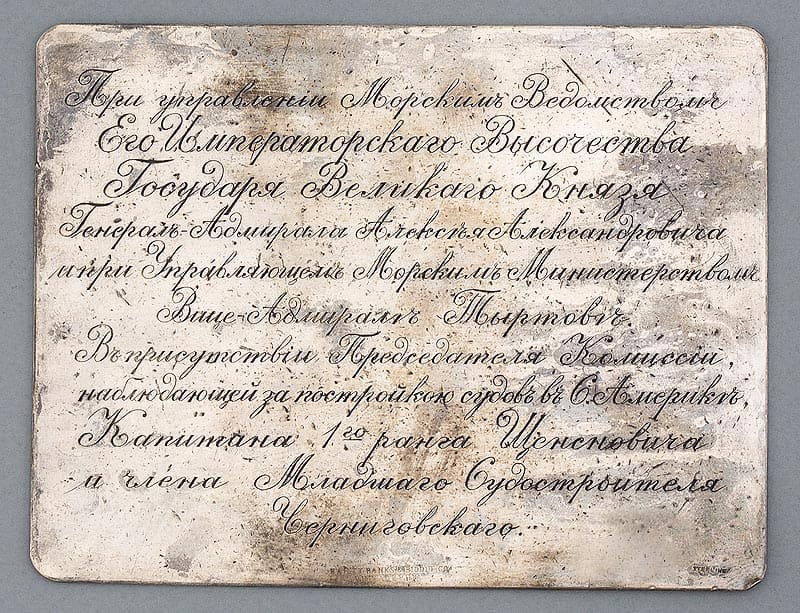 При управленіи Морскимъ Ведомствомъ
Его Императорскаго Высочества
Государя Великаго Князя
Генералъ-Адмирала Алексѣя Александровича
и при Управляющемъ Морскимъ Министерствомъ
Вице-Адмиралѣ Тыртовѣ,
Въ присутствіи Председателя Комиссіи,
наблюдающей за постройкою судовъ въ С. Америкѣ,
Капитана 1го ранга Щенсновича
и члена Младшаго Судостроителя
Черниговскаго.
BAILEY BANKS & BIDDLE CO.
STERLING